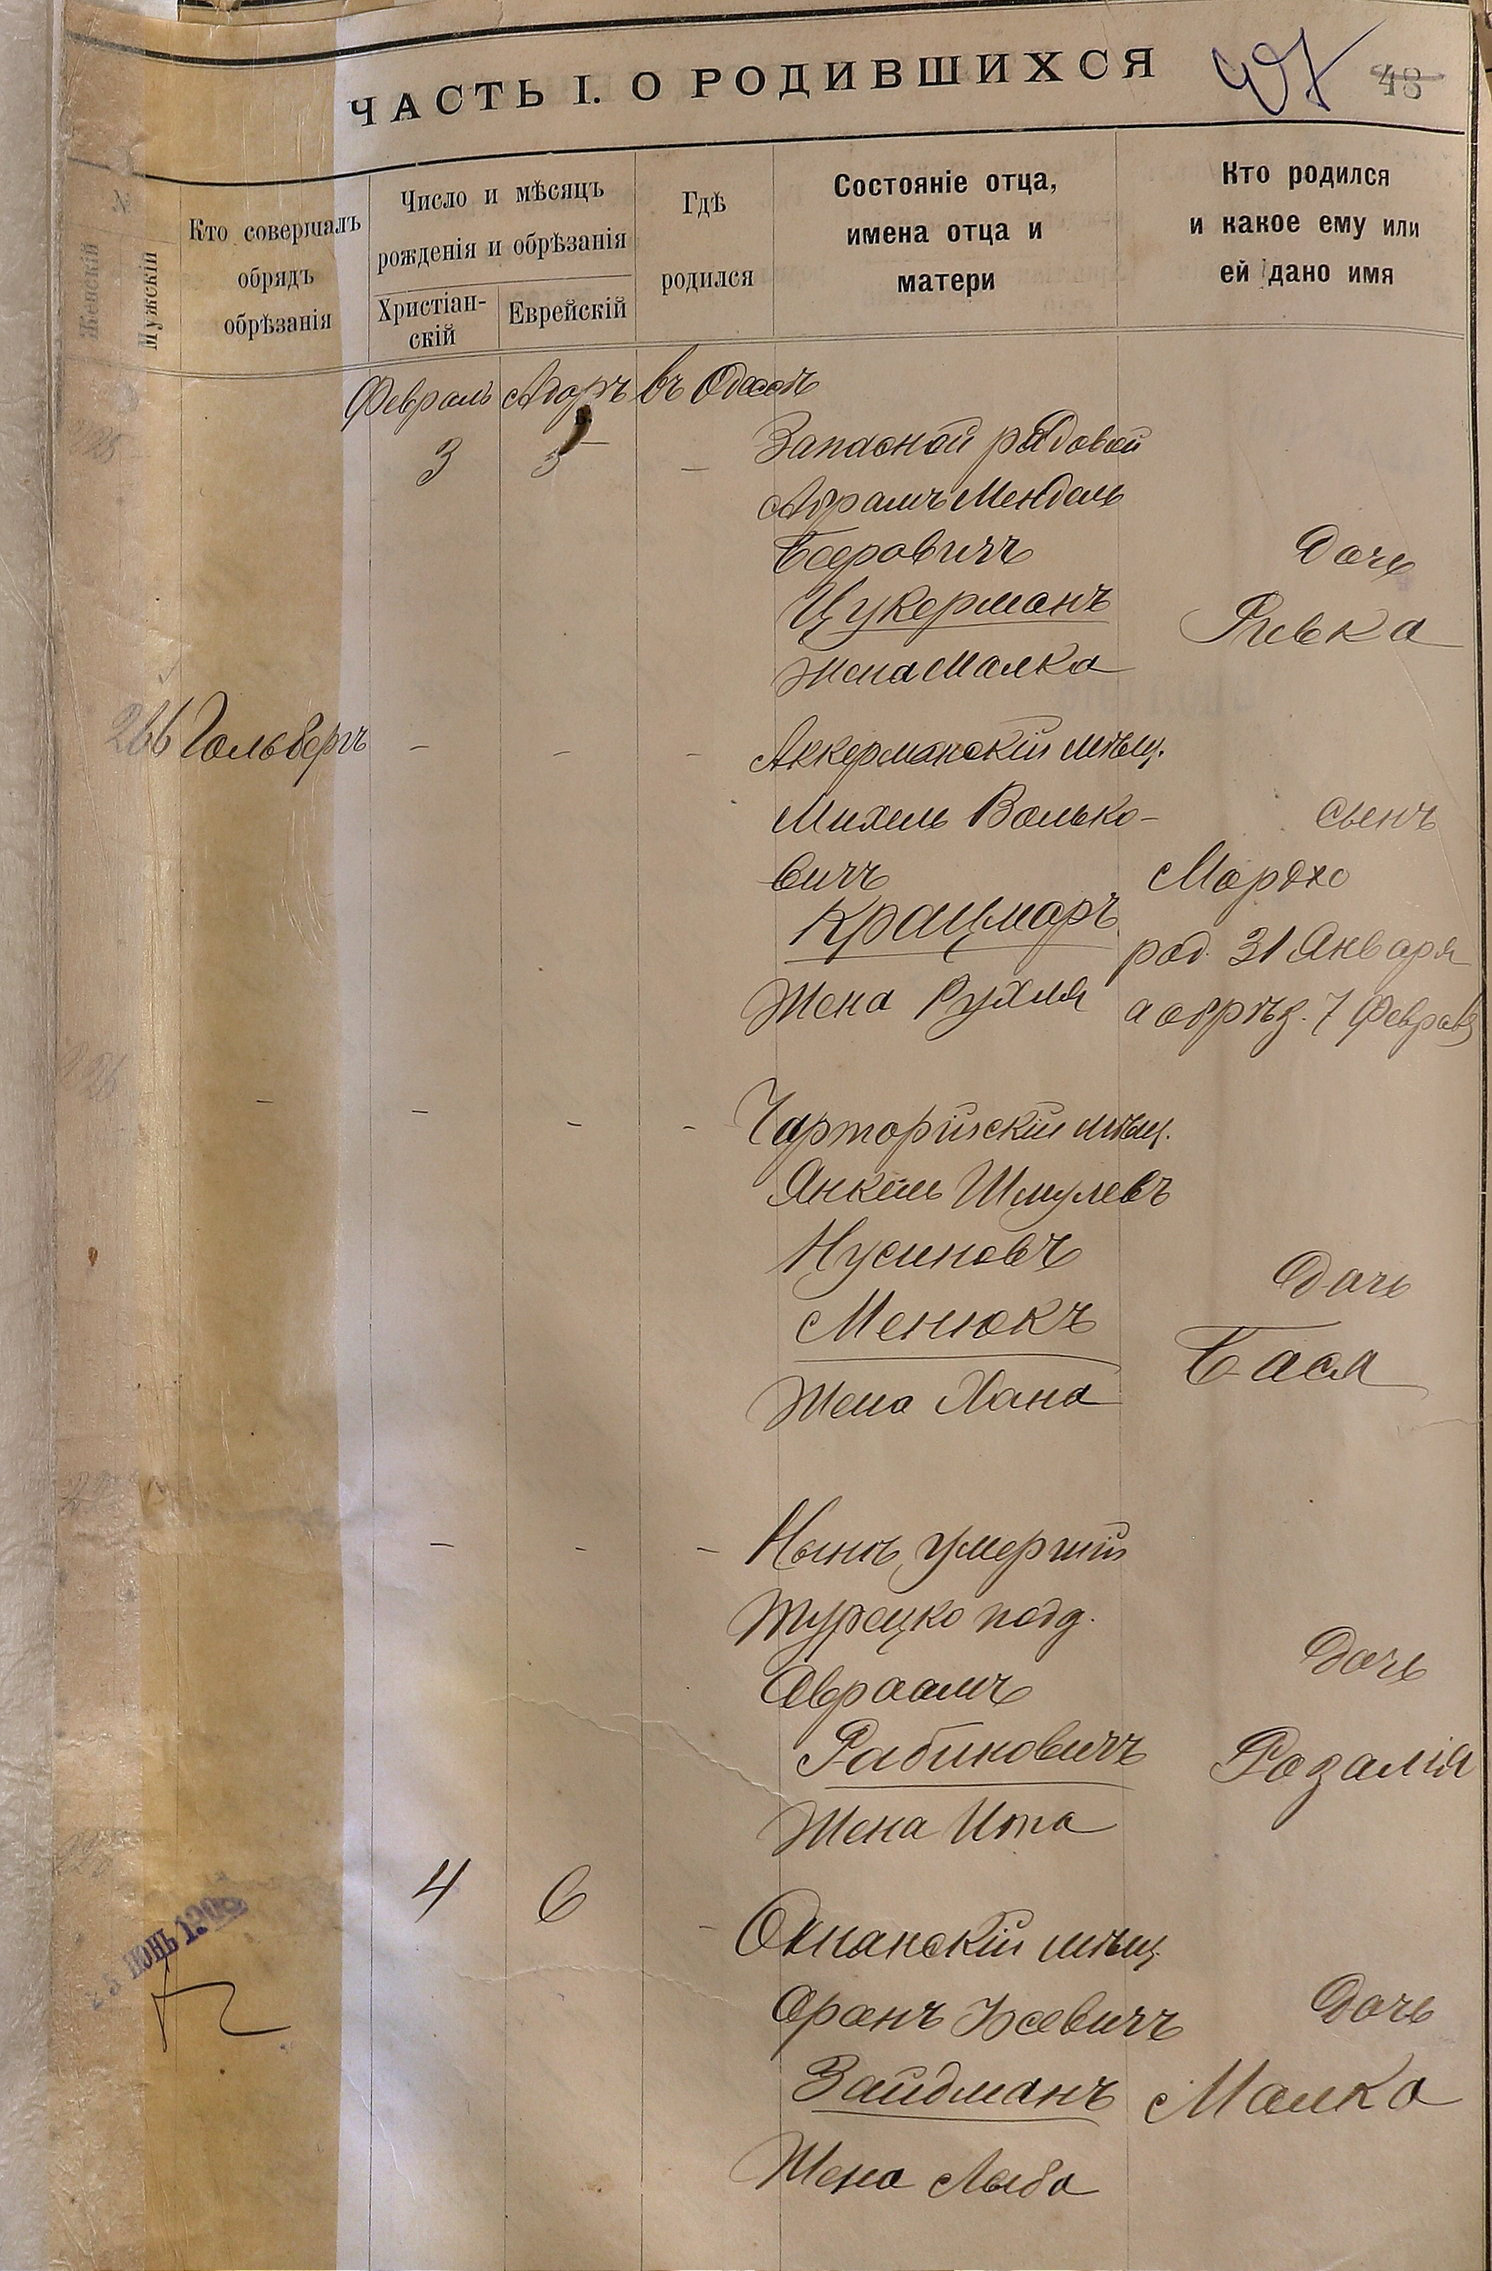 ЧАСТЬ I. О РОДИВШИХСЯ
48
№
Женскій
Мужскій
Кто совершалъ
обрядъ
обрѣзанія
Число и мѣсяцъ
рожденія и обрѣзанія
Христіан-
скій
Еврейскій
Гдѣ
родился
Состояніе отца,
имена отца и
матери
Кто родился
и какое ему или
ей дано имя
Февраль Адаръ въ Одессѣ
3 5 — —
Запасной рядовой
Абрамъ Мендель
Беровичъ
Цукерманъ
жена Малка
Дочь
Ривка
266 Гольбергъ — — —
Аккерманскій мѣщ.
Михель Волько-
вичъ
Крацмаръ
Жена Рухля
сынъ
Мордко
род. 31 Января
а обрѣз. 7 Февраля
— — — —
Чарторійскій мѣщ.
Янкель Шмулевъ
Нусиновъ
Менюкъ
Жена Хана
Дочь
Бася
— — —
Нынѣ умершій
турецко подд.
Авраамъ
Рабиновичъ
Жена Ита
Дочь
Розалія
4 6 —
Окнанскій мѣщ.
Аранъ Іосевичъ
Зайдманъ
Жена Лыба
Дочь
Малка
ІЮНЬ